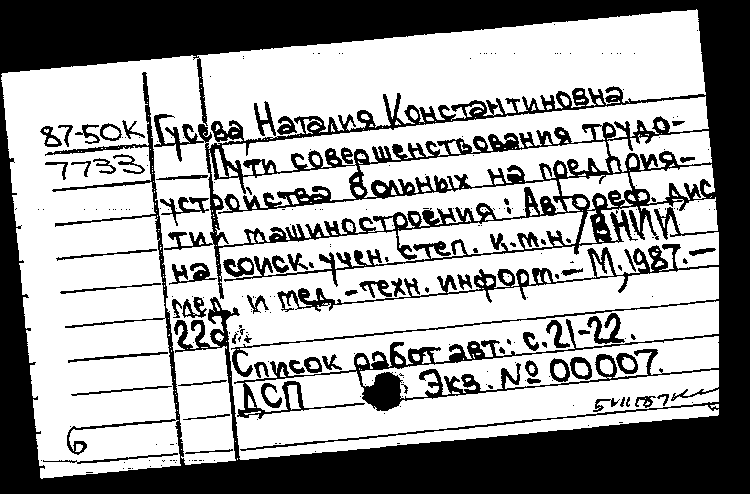 87-50К
7733
Гусева Наталия Константиновна.
Пути совершенствования трудо-
устройства больных на предприя-
тии машиностроения: Автореф. дис
на соиск. учен. степ. к.м.н./ВНИИ
мед. и мед.-техн. информ.— М., 1987.—
22с.
Список работ авт.: с.21-22.
ДСП Экз. № 00007.
6